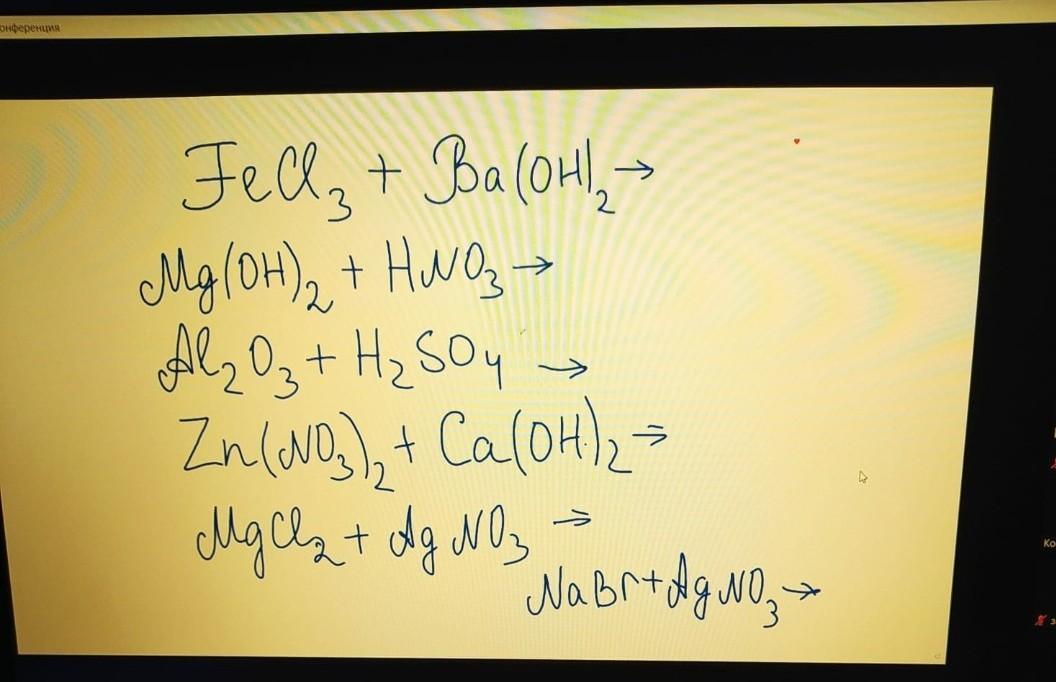 онференция
FeCl₃ + Ba(OH)₂→
Mg(OH)₂ + HNO₃→
Al₂O₃ + H₂SO₄ →
Zn(NO₃)₂ + Ca(OH)₂ ⇒
MgCl₂ + AgNO₃ ⇒
NaBr + AgNO₃→
Ко